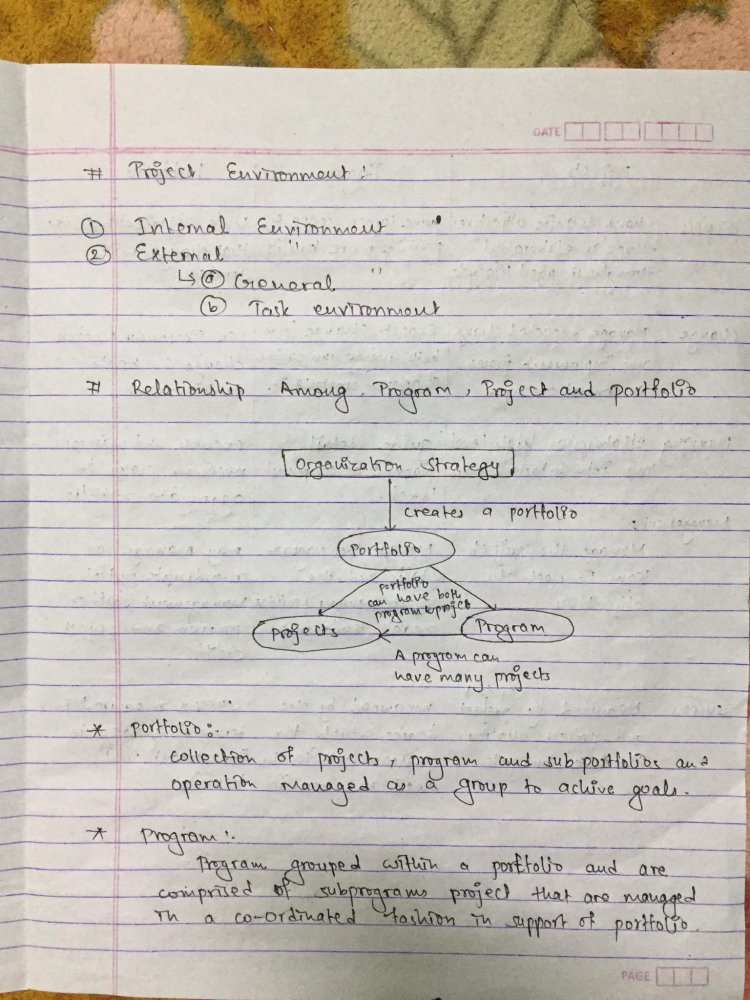 DATE
# Project Environment :
① Internal Environment
② External "
↳ ⓐ General "
ⓑ Task environment
# Relationship Among Program, Project and portfolio
Organization Strategy
creates a portfolio
Portfolio
portfolio
can have both
program & project
Projects
Program
A program can
have many projects
* portfolio :-
collection of projects, program and sub portfolios and
operation managed as a group to achive goals.
* Program :-
Program grouped within a portfolio and are
comprised of subprograms project that are managed
in a co-ordinated fashion in support of portfolio.
PAGE